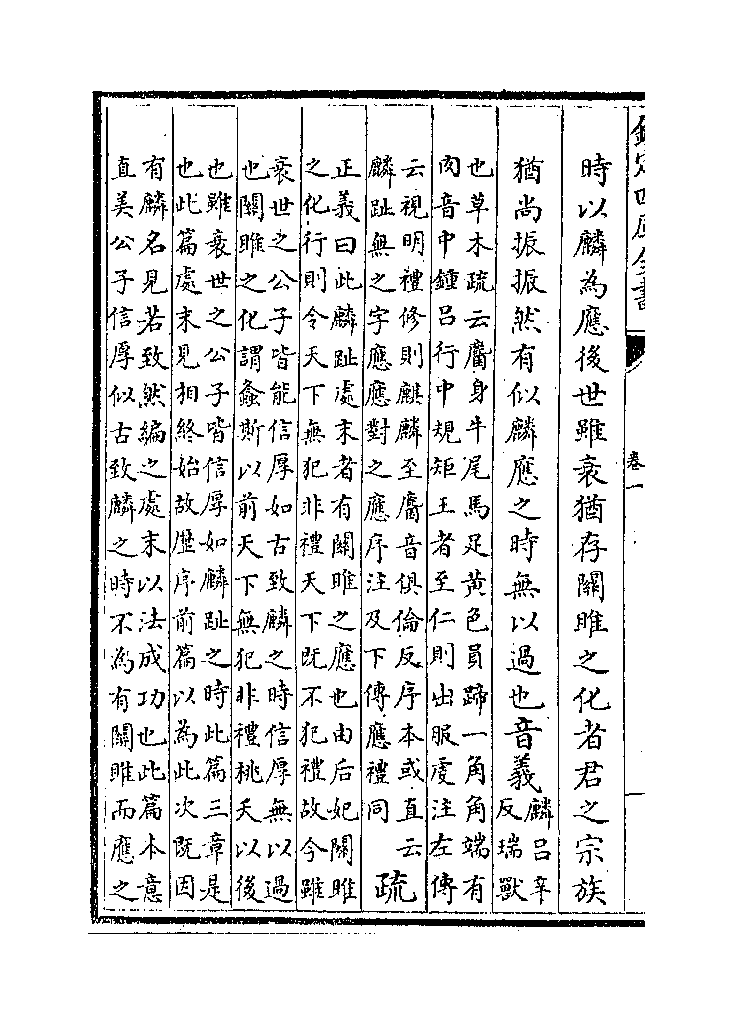 欽定四庫全書
卷一
時以麟為應後世雖衰猶存關雎之化者君之宗族
猶尚振振然有似麟應之時無以過也音義麟呂辛
反瑞獸
也草木疏云麕身牛尾馬足黃色員蹄一角角端有
肉音中鍾呂行中規矩王者至仁則出服虔注左傳
云視明禮修則麒麟至麕音俱倫反序本或直云
麟趾無之字應應對之應序注及下傳應禮同
疏
正義曰此麟趾處末者有關雎之應也由后妃關雎
之化行則令天下無犯非禮天下既不犯禮故今雖
衰世之公子皆能信厚如古致麟之時信厚無以過
也關雎之化謂螽斯以前天下無犯非禮桃夭以後
也雖衰世之公子皆信厚如麟趾之時此篇三章是
也此篇處末見相終始故歷序前篇以為此次既因
有麟名見若致然編之處末以法成功也此篇本意
直美公子信厚似古致麟之時不為有關雎而應之